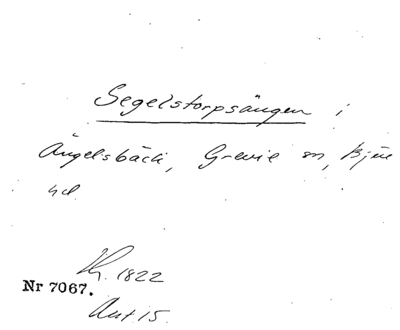 Segelstorpsängen i
Ängelsbäck, Grevie sn, Bjäre
hd.
Kr. 1822
Nr 7067.
Akt 15.